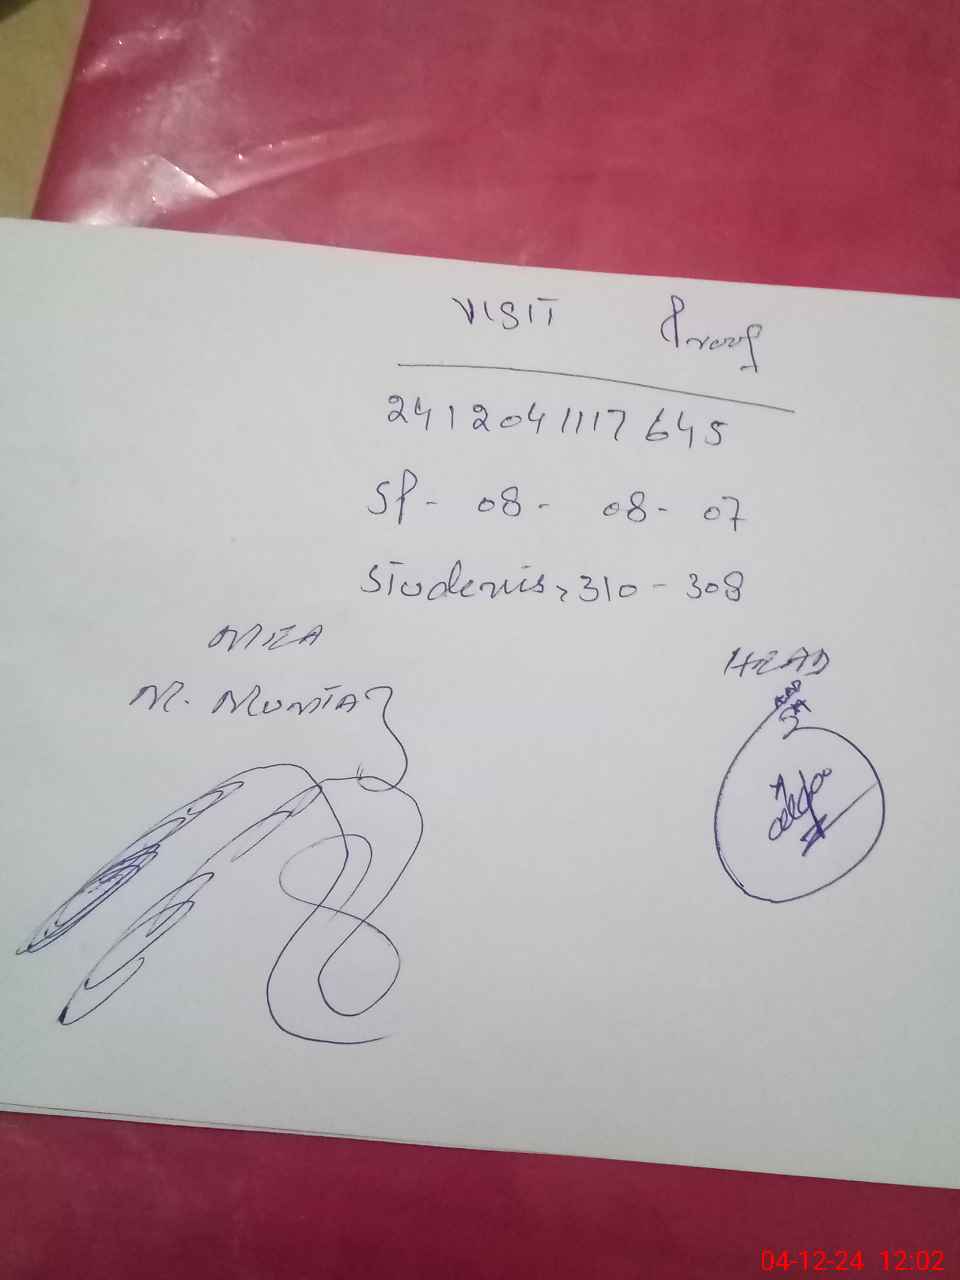 VISIT Proof
2412041117645
SP- 08- 08- 07
Students, 310 - 308
MEA
M. MUMTAZ
HEAD
04-12-24 12:02